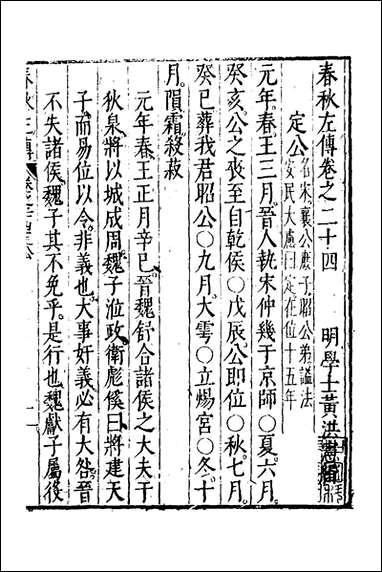 春秋左傳卷之二十四
明學士黃洪憲輯
定公
名宋襄公庶子昭公弟謚法
安民大慮曰定在位十五年
元年。春。王三月。晉人執宋仲幾于京師〇夏。六月。
癸亥公之喪至自乾侯〇戊辰公即位〇秋。七月。
癸巳葬我君昭公〇九月。大雩〇立煬宮〇冬。十
月。隕霜殺菽
元年春。王正月辛巳。晉魏舒合諸侯之大夫于
狄泉。將以城成周。魏子涖政。衛彪傒曰。將建天
子。而易位以令。非義也。大事奸義。必有大咎。晉
不失諸侯。魏子其不免乎。是行也。魏獻子屬役